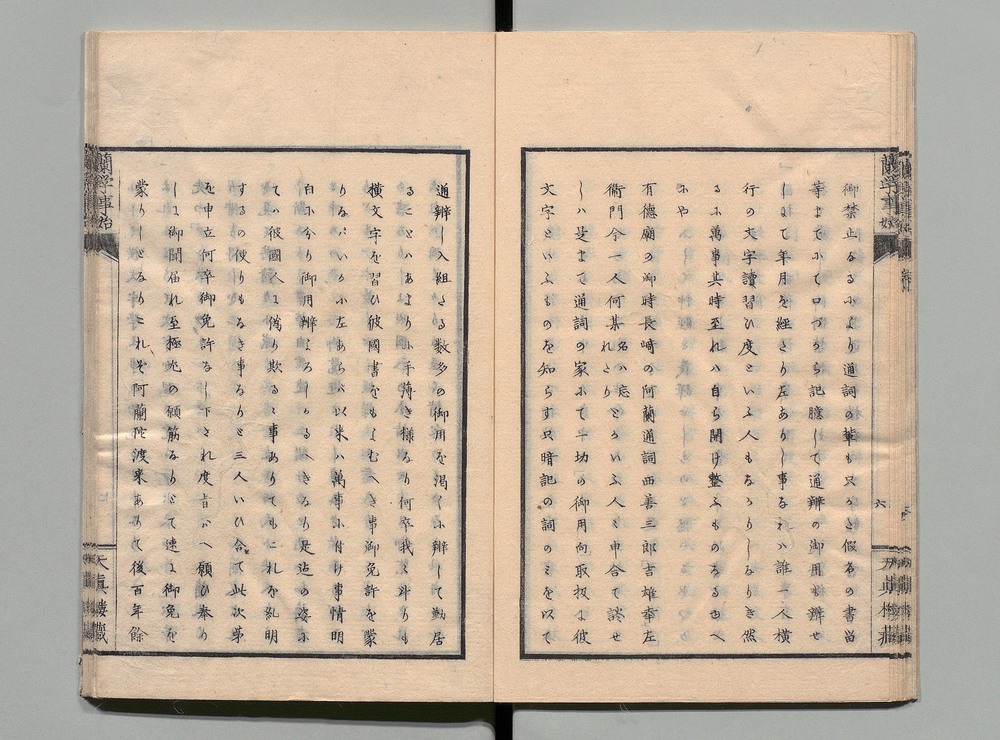 御禁止なるふより通詞の輩も只かと假名の書留
等まてにて口つから記臆して通辨の御用も辨せ
しまて年月を経たり左ありし事なれハ誰一人横
行の文字讀習ひ度といふ人もなかりしなりき然
るに萬事其時至れハ自ら開け整ふものなるへ
にや
有徳廟の御時長崎の阿蘭通詞西善三郎吉雄幸左
衛門今一人何某名ハ忘れたりとかいふ人と申合て談せ
しハ是まて通詞の家にて一切の御用向取扱に彼
文字といふものを知らす只暗記の詞のミを以て
通辨し入組たる数多の御用を渇しに辨して勤居
ることハあまりに手薄き様なり何卒我々斗りも
横文字を習ひ彼國書をもよむへき事御免許を蒙
りなハいかに左あらハ以来ハ萬事に付け事情明
白に分り御用辨よろしかるへきなり是迄の姿に
てハ彼國人に偽り欺るゝ事ありてもこれを糺明
するの便りもなき事なりと三人いひ合て此次第
を申立何卒御免許なし下され度旨かへ願ひ奉り
しに御聞届れ至極尤の願筋なりとて速に御免を
蒙りしとなりこれそ阿蘭陀渡来ありて後百年餘
蘭学事始
六
天真樓藏
蘭学事始
天真樓藏